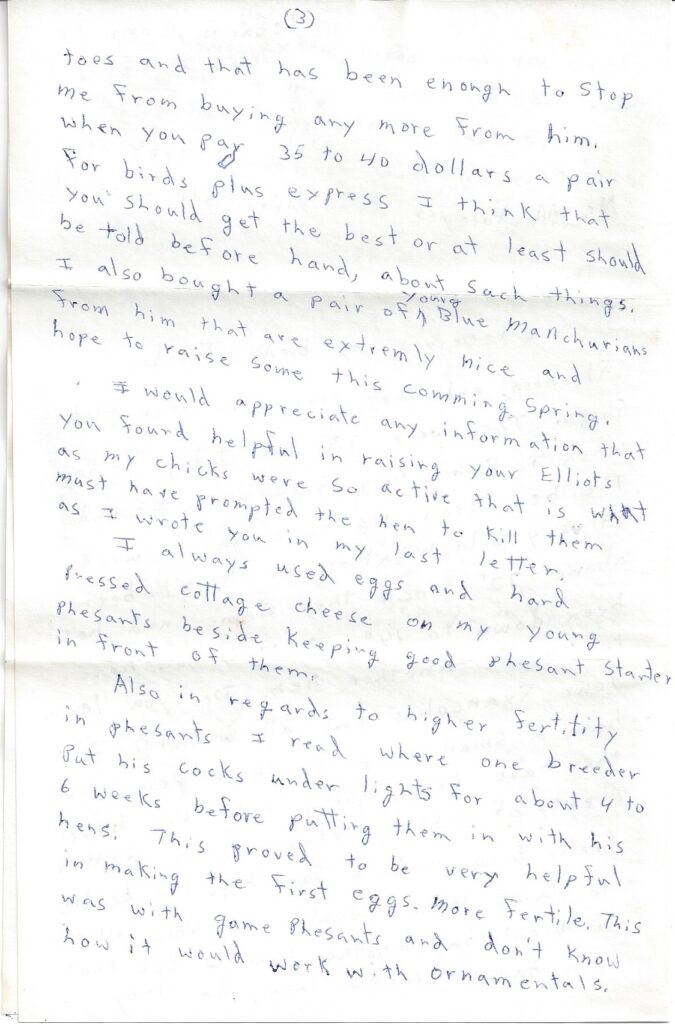 (3)
toes and that has been enough to stop
me from buying any more from him.
when you pay 35 to 40 dollars a pair
for birds plus express I think that
you should get the best or at least should
be told before hand, about such things.
I also bought a pair of young Blue Manchurians
from him that are extremly nice and
hope to raise some this comming Spring.
I would appreciate any information that
you found helpful in raising your Elliots
as my chicks were so active that is what
must have prompted the hen to kill them
as I wrote you in my last letter.
I always used eggs and hard
pressed cottage cheese on my young
phesants beside keeping good phesant starter
in front of them.
Also in regards to higher fertitity
in phesants I read where one breeder
put his cocks under lights for about 4 to
6 weeks before putting them in with his
hens. This proved to be very helpful
in making the first eggs. more fertile. This
was with game phesants and don't know
how it would work with ornamentals.